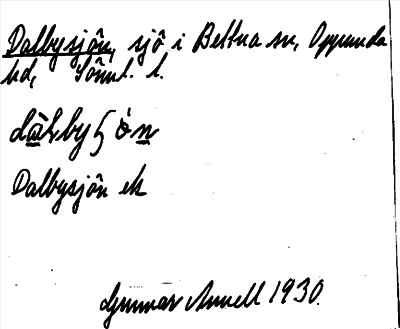 Dalbysjön, sjö i Bettna sn, Oppunda
hd, Södml. l.
Dalbysjön ek
Gunnar Annell 1930.